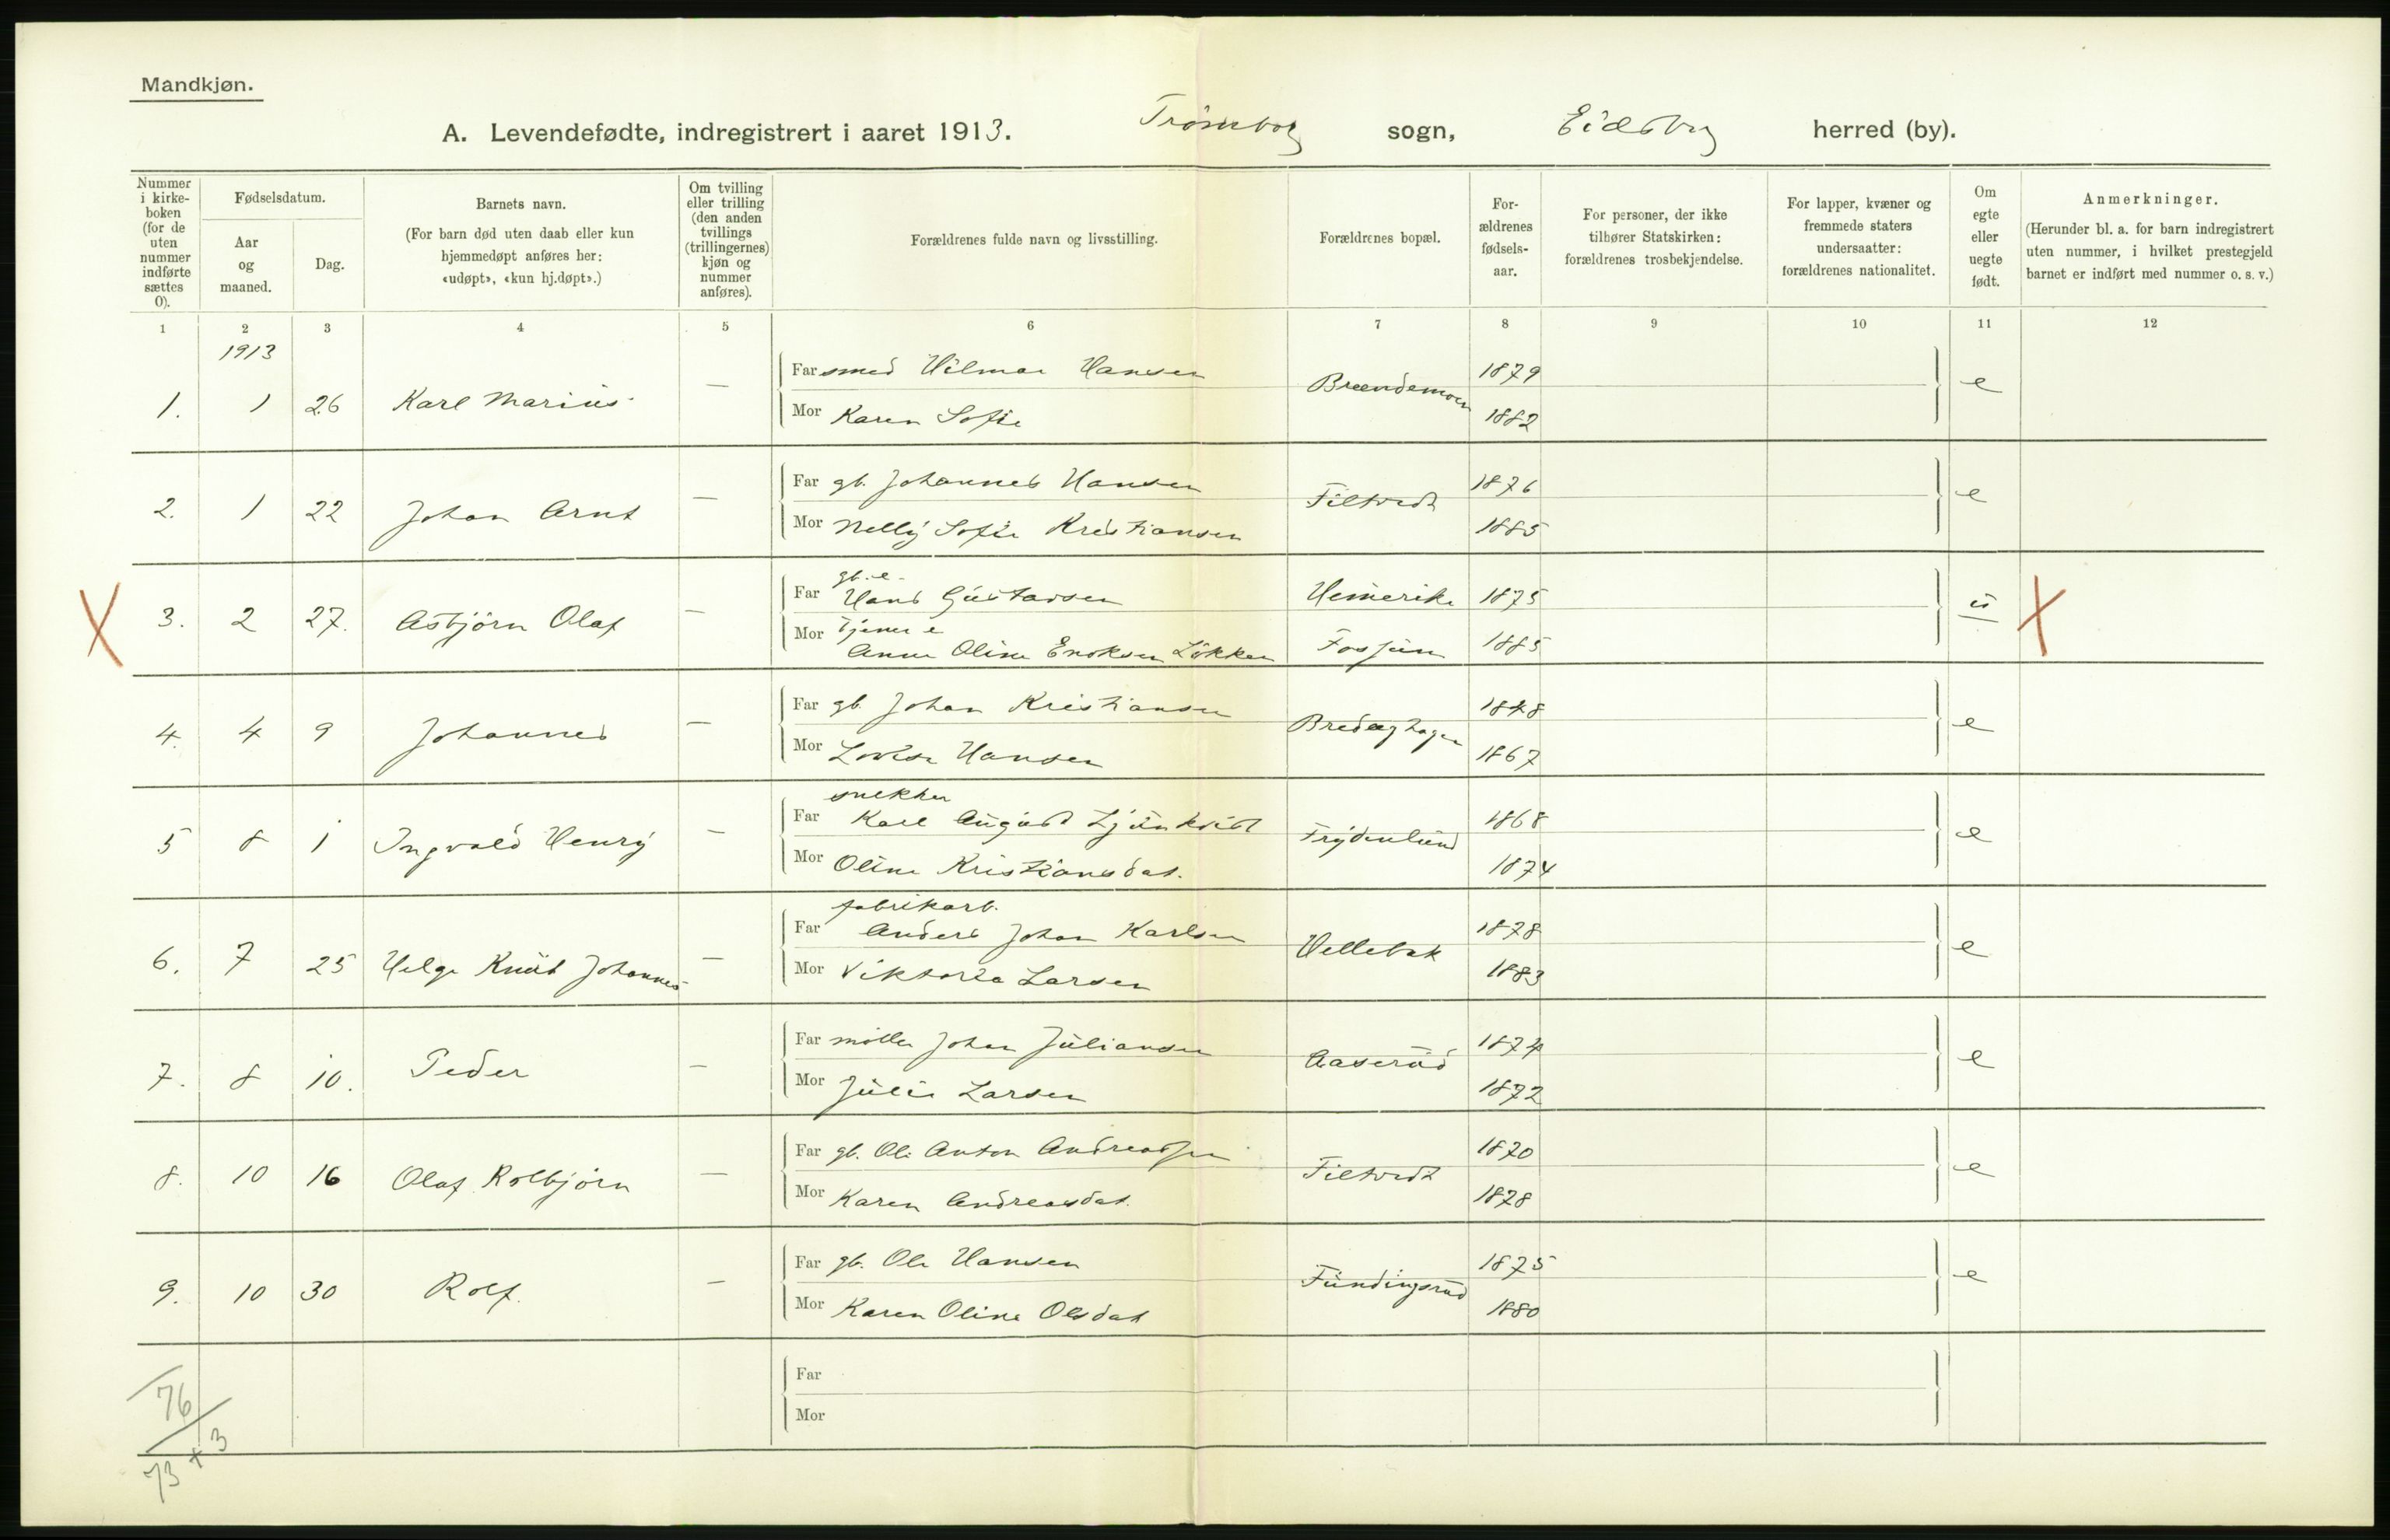 Mandkjøn.
A. Levendefødte, indregistrert i aaret 1913. Trømborg sogn, Eidsberg herred (by).
Nummer i kirke-boken (for de uten nummer indførte sættes 0).
Fødselsdatum.
Aar og maaned.
Dag.
Barnets navn.
(For barn død uten daab eller kun hjemmedøpt anføres her: «udøpt», «kun hj.døpt».)
Om tvilling eller trilling (den anden tvillings (trillingernes) kjøn og nummer anføres).
Forældrenes fulde navn og livsstilling.
Forældrenes bopæl.
For-ældrenes fødsels-aar.
For personer, der ikke tilhører Statskirken: forældrenes trosbekjendelse.
For lapper, kvæner og fremmede staters undersaatter: forældrenes nationalitet.
Om egte eller uegte født.
Anmerkninger.
(Herunder bl. a. for barn indregistrert uten nummer, i hvilket prestegjeld barnet er indført med nummer o. s. v.)
1 2 3 4 5 6 7 8 9 10 11 12
1913
1. 1 26 Karl Marius — Far smed Hilmar Hansen Brændemoen 1879 e
Mor Karen Sofie 1882
2. 1 22 Johan Arnt — Far gb. Johannes Hansen Tiltvedt 1876 e
Mor Nelly Sofie Kristiansen 1885
gb. e.
X 3. 2 27. Asbjörn Olaf — Far Hans Gustavsen Hemerike 1875 u X
tjener e
Mor Anne Oline Enoksen Løkken Fossum 1885
4. 4 9 Johannes — Far gb. Johan Kristiansen 1848 e
Mor Lovise Hansen 1867
snekker
5 8 1 Ingvald Henry — Far Karl August Ljunkvist Frydenlund 1868 e
Mor Oline Kristiansdat. 1874
fabrikarb.
6. 7 25 Helge Knut Johannes — Far Anders Johan Karlsen Hellebæk 1878 e
Mor Viktoria Larsen 1883
7. 8 10. Peder — Far møller Johan Juliansen Aaserud 1874 e
Mor Julie Larsen 1872
8. 10 16 Olaf Kolbjörn — Far gb. Ole Anton Andreassen Tiltvedt 1870 e
Mor Karen Andreasdat. 1878
9. 10 30 Rolf. — Far gb. Ole Hansen Fundingsrud 1875 e
Mor Karen Oline Olsdat 1880
Far
Mor
76
73 + 3